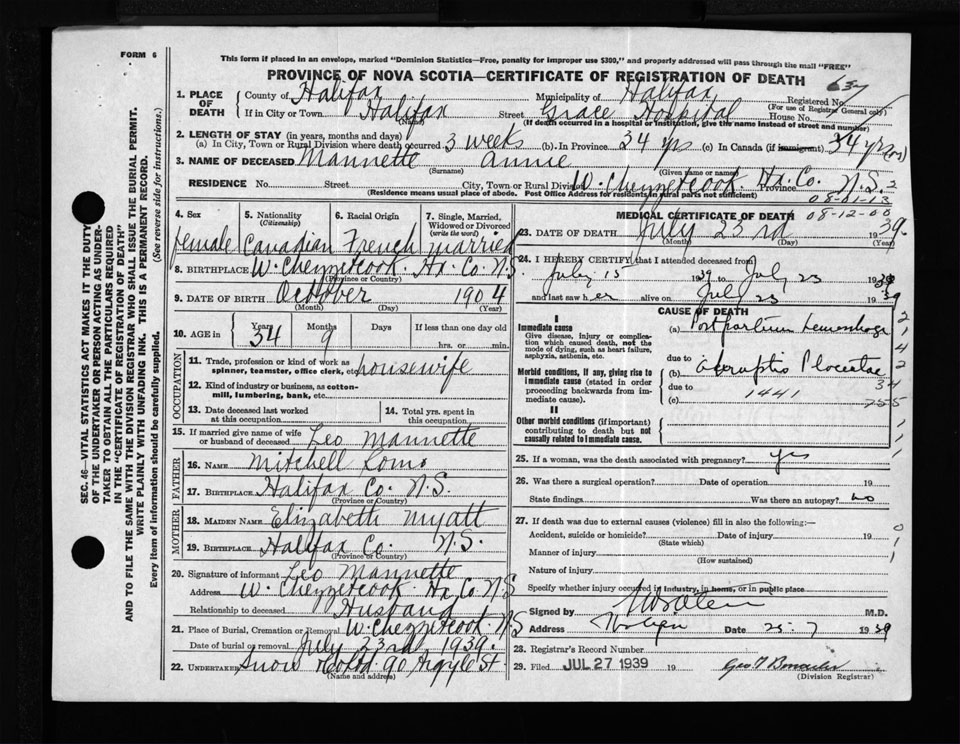 FORM 6
This form if placed in an envelope, marked "Dominion Statistics—Free, penalty for improper use $300," and properly addressed will pass through the mail "FREE"
PROVINCE OF NOVA SCOTIA—CERTIFICATE OF REGISTRATION OF DEATH
1. PLACE OF DEATH County of Halifax Municipality of Halifax Registered No.
(For use of Registrar General only)
If in City or Town Halifax (Name) Street Grace Hospital House No.
(If death occurred in a hospital or institution, give the name instead of street and number)
2. LENGTH OF STAY (in years, months and days)
(a) In City, Town or Rural Division where death occurred 3 weeks (b). In Province 34 yrs (c) In Canada (if immigrant) 34 yrs
3. NAME OF DECEASED Mannette Annie
(Surname) (Given name or names)
RESIDENCE No. Street City, Town or Rural Division W. Chezzetcook. Hx. Co. Province N.S.
(Residence means usual place of abode. Post Office Address for residents in rural parts not sufficient)
08-01-13
08-12-00
4. Sex female
5. Nationality (Citizenship) Canadian
6. Racial Origin French
7. Single, Married, Widowed or Divorced (write the word) married
8. BIRTHPLACE W. Chezzetcook. Hx. Co. N.S.
(Province or Country)
9. DATE OF BIRTH October 1904
(Month) (Day) (Year)
10. AGE in Years 34 Months 9 Days If less than one day old hrs. or min.
OCCUPATION
11. Trade, profession or kind of work as spinner, teamster, office clerk, etc. housewife
12. Kind of industry or business, as cotton-mill, lumbering, bank, etc.
13. Date deceased last worked at this occupation
14. Total yrs. spent in this occupation
15. If married give name of wife or husband of deceased Leo Mannette
FATHER
16. NAME Mitchell
17. BIRTHPLACE Halifax Co. N.S.
(Province or Country)
MOTHER
18. MAIDEN NAME Elizabeth Myatt
19. BIRTHPLACE Halifax Co. N.S.
(Province or Country)
20. Signature of informant Leo Mannette
Address W. Chezzetcook Hx. Co. N.S
Relationship to deceased Husband
21. Place of Burial, Cremation or Removal W. Chezzetcook N.S
Date of burial or removal July 23rd 1939.
22. UNDERTAKER Snow & Co Ltd 90 Argyle St
(Name and address)
MEDICAL CERTIFICATE OF DEATH
23. DATE OF DEATH July 23rd 1939.
(Month) (Day) (Year)
24. I HEREBY CERTIFY that I attended deceased from
July 15 1939 to July 23 1939
and last saw her alive on July 23 1939
CAUSE OF DEATH
I
Immediate cause
Give disease, injury or complication which caused death, not the mode of dying, such as heart failure, asphyxia, asthenia, etc.
(a) Postpartum hemorrhage
due to
Morbid conditions, if any, giving rise to immediate cause (stated in order proceeding backwards from immediate cause).
(b) abruptio Placentae
due to
(c) 1441
II
Other morbid conditions (if important) contributing to death but not causally related to immediate cause.
25. If a woman, was the death associated with pregnancy? yes
26. Was there a surgical operation? Date of operation 19
State findings Was there an autopsy? no
27. If death was due to external causes (violence) fill in also the following:—
Accident, suicide or homicide? Date of injury 19
(State which)
Manner of injury
(How sustained)
Nature of injury
Specify whether injury occurred in industry, in home, or in public place
Signed by M.D.
Address Date 25-7 1939
28. Registrar's Record Number
29. Filed JUL 27 1939 19
(Division Registrar)
SEC. 46—VITAL STATISTICS ACT MAKES IT THE DUTY
OF THE UNDERTAKER OR PERSON ACTING AS UNDER-
TAKER TO OBTAIN ALL THE PARTICULARS REQUIRED
IN THE "CERTIFICATE OF REGISTRATION OF DEATH"
AND TO FILE THE SAME WITH THE DIVISION REGISTRAR WHO SHALL ISSUE THE BURIAL PERMIT.
WRITE PLAINLY WITH UNFADING INK. THIS IS A PERMANENT RECORD.
Every item of information should be carefully supplied. (See reverse side for instructions.)